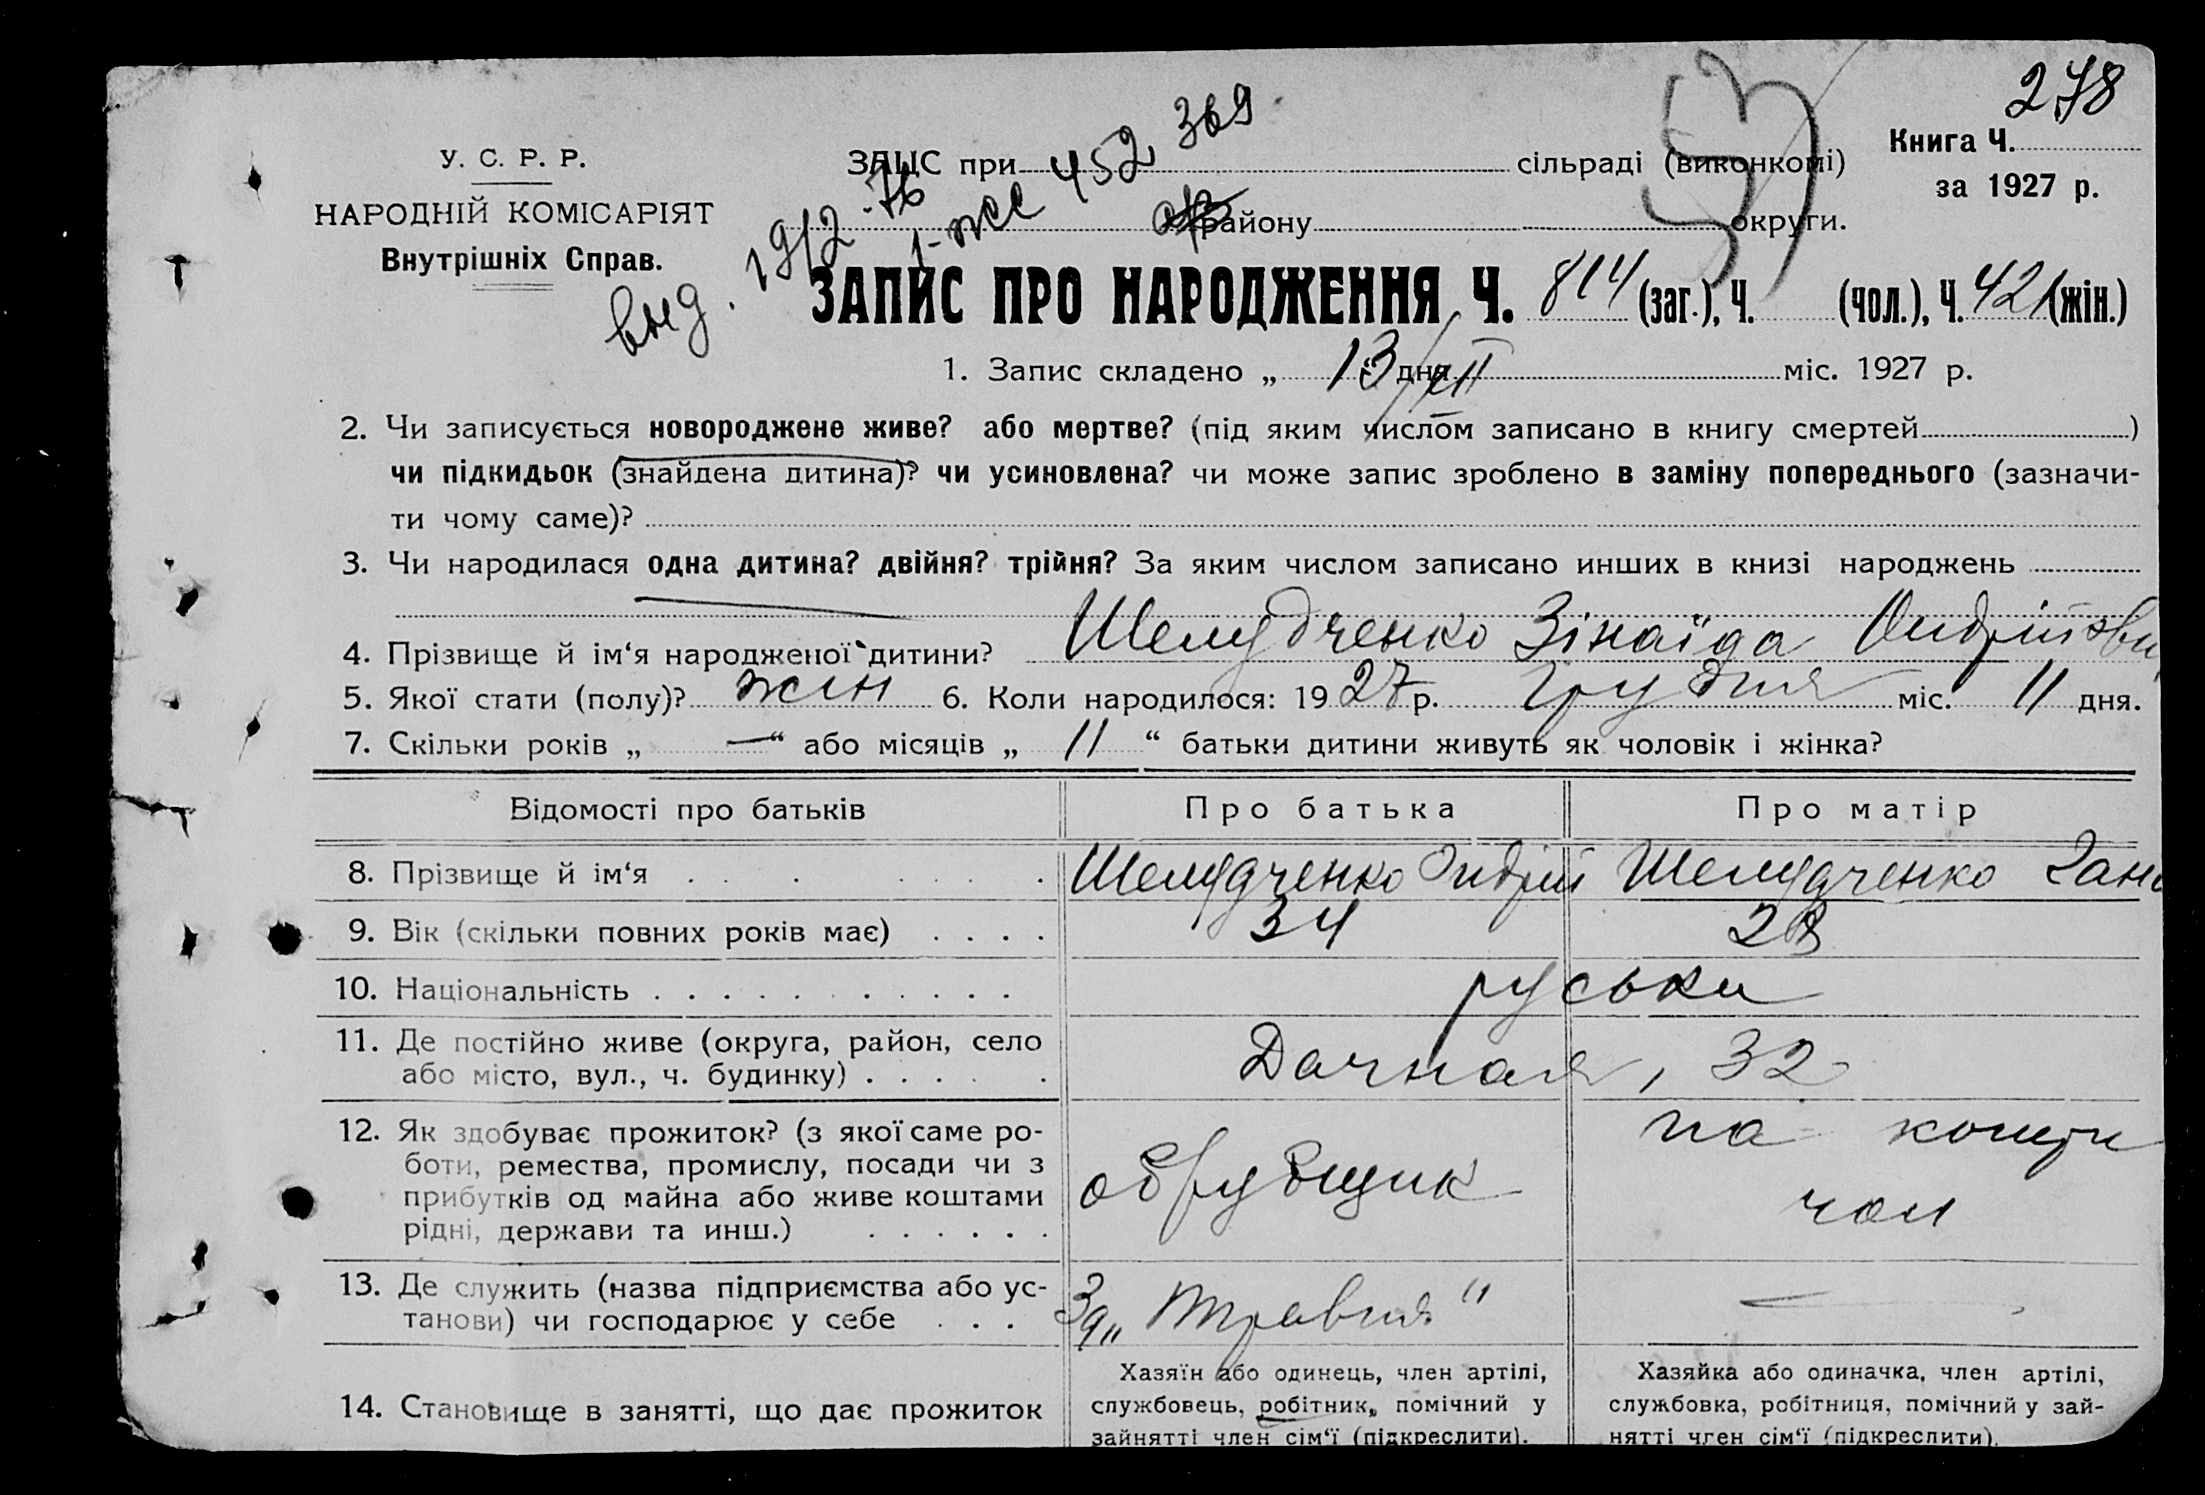 278
У. С. Р. Р.
НАРОДНІЙ КОМІСАРІЯТ
Внутрішніх Справ.
ЗАЦС при сільраді (виконкомі)
району округи.
Книга Ч.
за 1927 р.
выд. 19/2 -76
1-жс 452 369
ЗАПИС ПРО НАРОДЖЕННЯ Ч. 814 (заг.), Ч. (чол.), Ч. 421 (жін.)
1. Запис складено „ 13 “ дня XII міс. 1927 р.
2. Чи записується новороджене живе? або мертве? (під яким числом записано в книгу смертей )
чи підкидьок (знайдена дитина)? чи усиновлена? чи може запис зроблено в заміну попереднього (зазначи-
ти чому саме)?
3. Чи народилася одна дитина? двійня? трійня? За яким числом записано инших в книзі народжень
4. Прізвище й ім‘я народженої дитини? Шелудченко Зінаїда Андріївн
5. Якої стати (полу)? жін 6. Коли народилося: 19 27 р. Грудня міс. 11 дня.
7. Скільки років „ — “ або місяців „ 11 “ батьки дитини живуть як чоловік і жінка?
Відомості про батьків Про батька Про матір
8. Прізвище й ім‘я . . . . . . . . Шелудченко Андрій Шелудченко Ган
9. Вік (скільки повних років має) . . . . 34 28
10. Національність . . . . . . . . . . . руськи
11. Де постійно живе (округа, район, село
або місто, вул., ч. будинку) . . . . . . Дачная, 32
12. Як здобуває прожиток? (з якої саме ро-
боти, ремества, промислу, посади чи з
прибутків од майна або живе коштами
рідні, держави та инш.) . . . . . .
обрубщик
на кошти
чол
13. Де служить (назва підприємства або ус-
танови) чи господарює у себе . . .
З/д „Травня“ —
14. Становище в занятті, що дає прожиток
Хазяїн або одинець, член артілі,
службовець, робітник, помічний у
зайнятті член сім‘ї (підкреслити).
Хазяйка або одиначка, член артілі,
службовка, робітниця, помічний у зай-
нятті член сім‘ї (підкреслити).